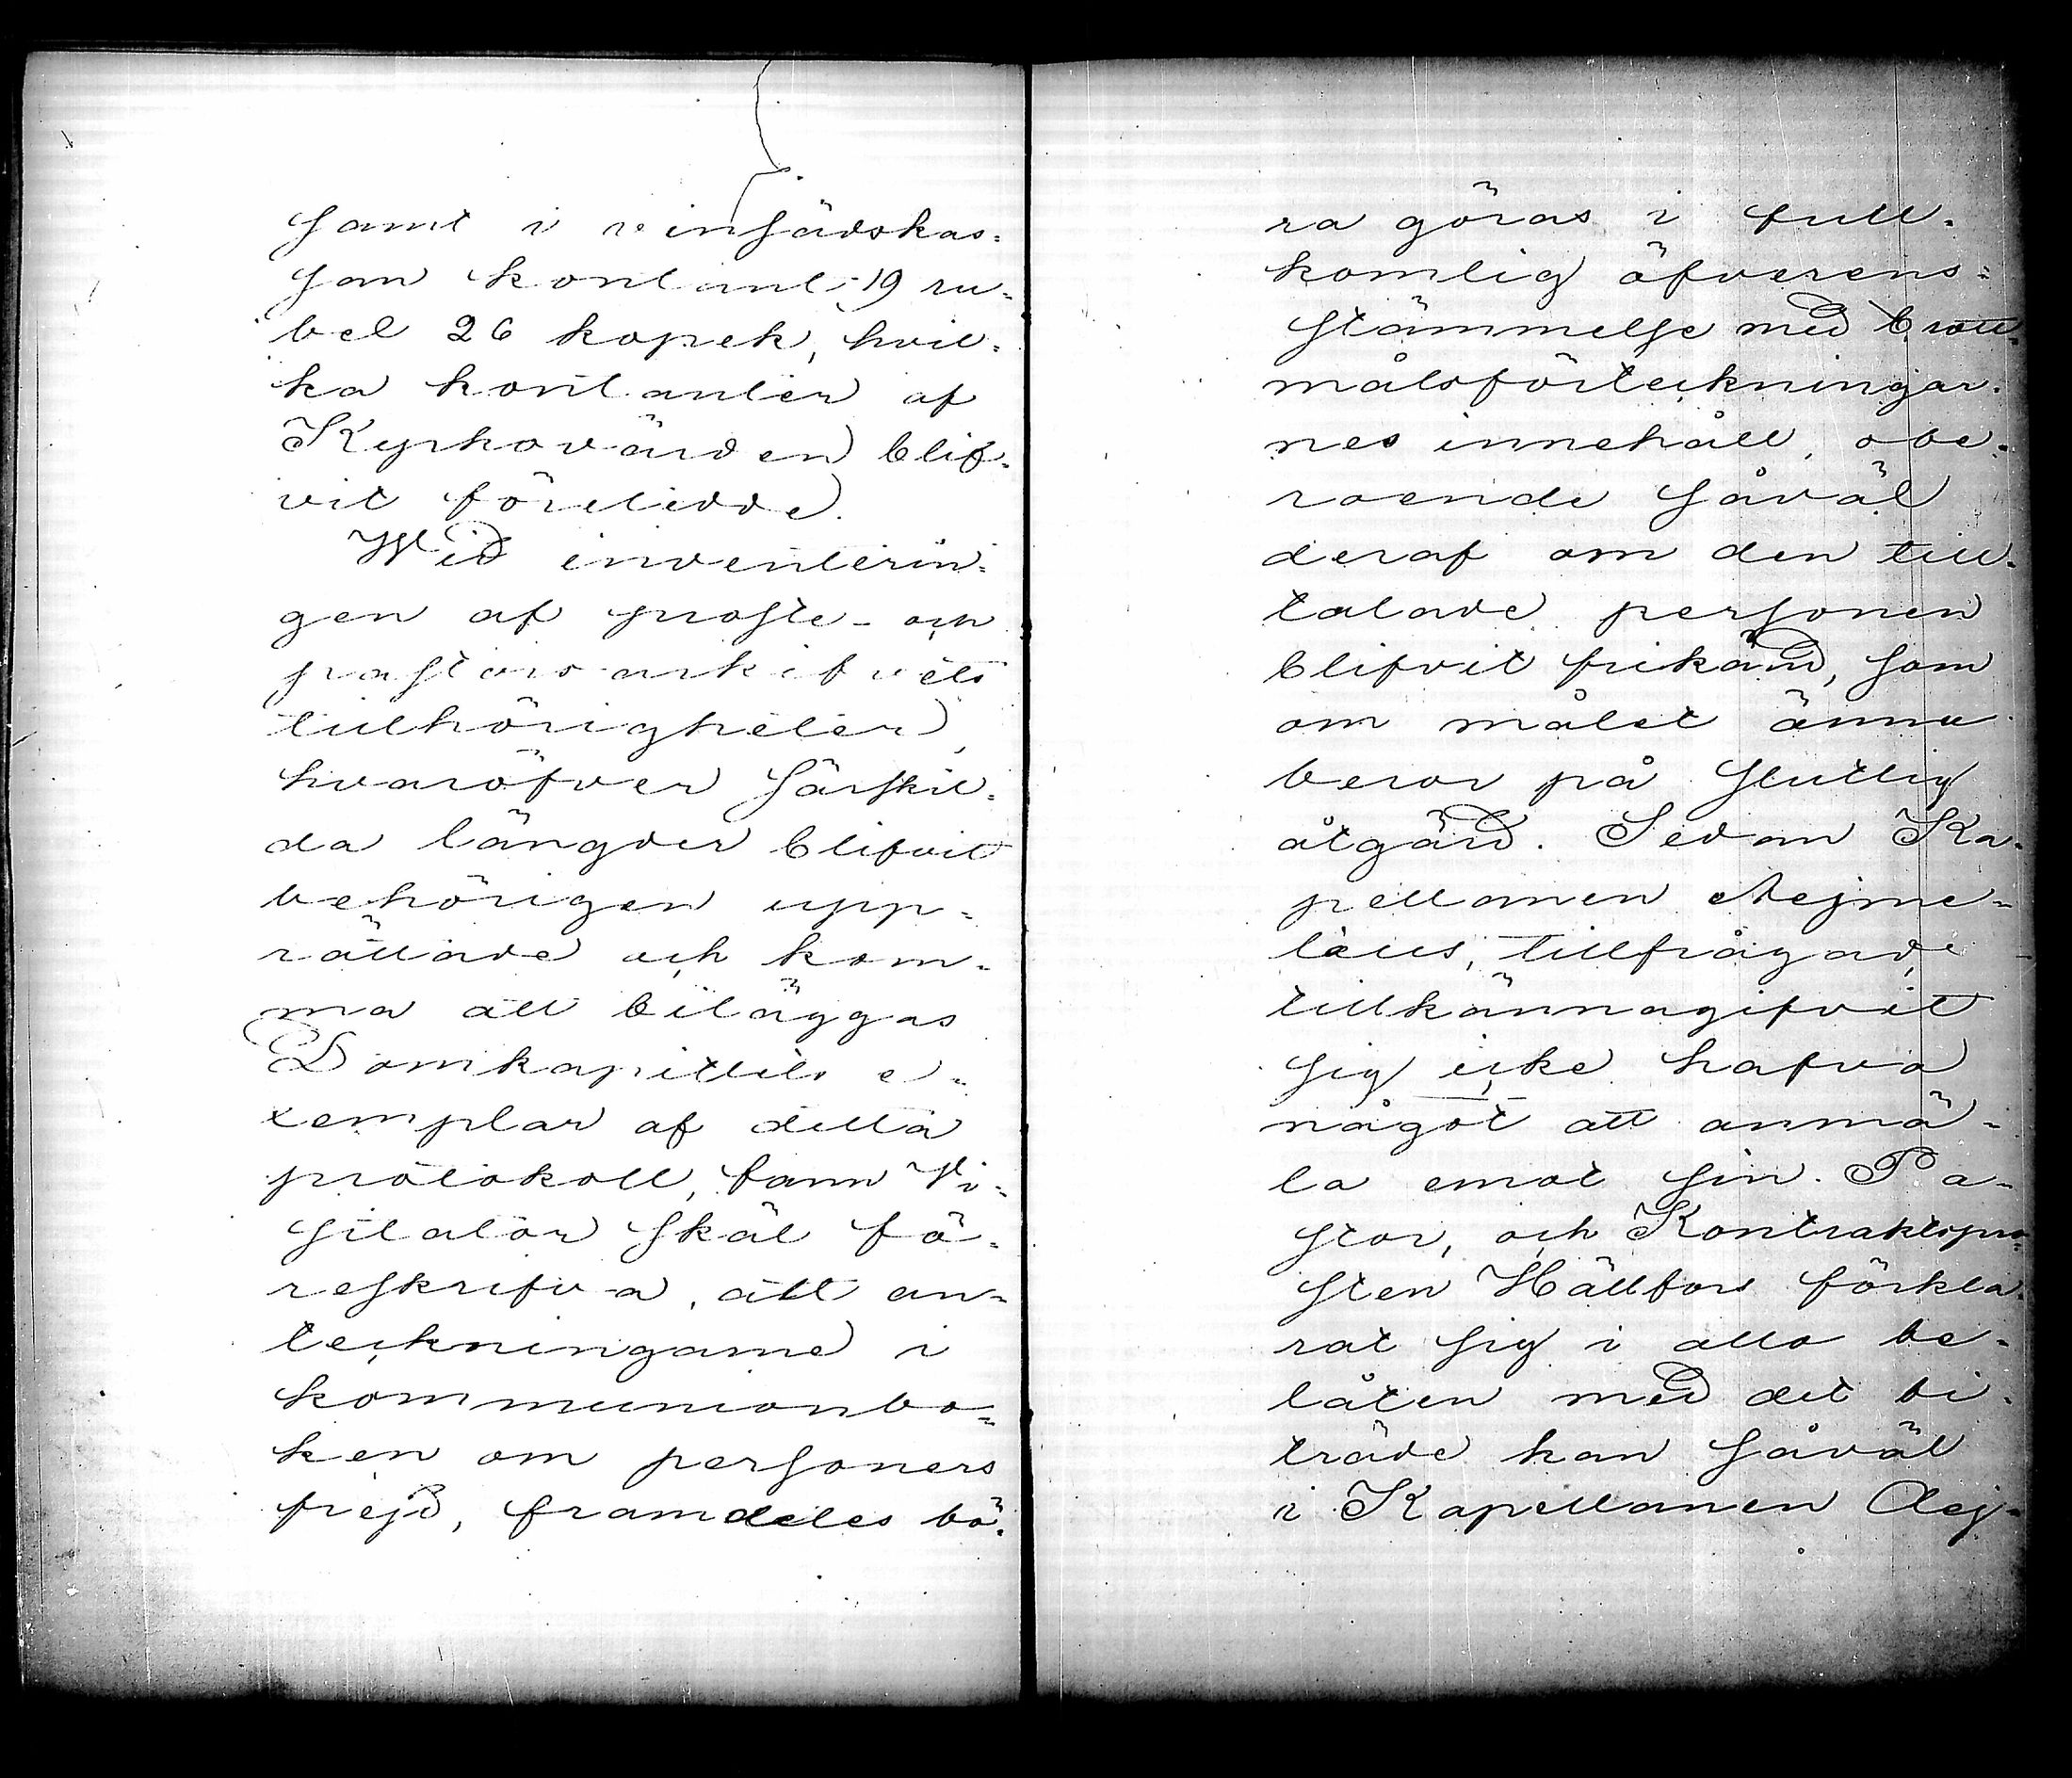 samt i vinsädskas=
san kontant 19 ru=
bel 26 kopek, hvil=
ka kontanter af
Kyrkovärden blif=
vit företedde.
Wid inventerin=
gen af proste- och
pastorsarkifvets
tillhörigheter,
hvaröfver särskil=
da längder blifvit
behörigen upp=
rättade och kom=
ma att biläggas
Domkapitlets e=
xemplar af detta
protokoll, fann Vi=
sitator skäl fö=
reskrifva, att an=
teckningarne i
kommunionbo=
ken om personers
frejd, framdeles bö=
ra göras i full=
komlig öfverens=
stämmelse med brott=
målsförteckningar=
nes innehåll, obe=
roende såväl
deraf om den till=
talade personen
blifvit frikänd, som
om målet ännu
beror på slutlig
åtgärd. Sedan Ka=
pellanen Aejme=
læus, tillfrågad,
tillkännagifvit
sig icke hafva
något att anmä=
la emot sin Pa=
stor, och Kontraktspro=
sten Hällfors förkla=
rat sig i allo be=
låten med det bi=
träde han såväl
i Kapellanen Aej=